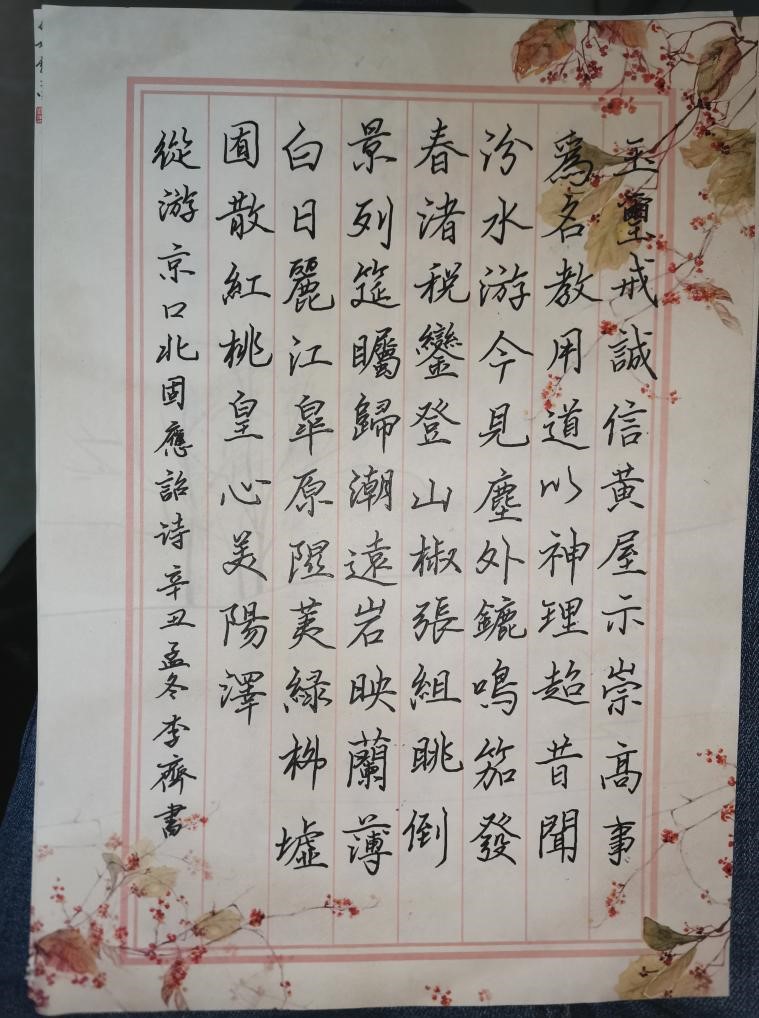 玉璽戒誠信黃屋示崇高事
為名教用道以神理超昔聞
汾水游今見塵外鑣鳴笳發
春渚稅鑾登山椒張組眺倒
景列筵矚歸潮遠岩映蘭薄
白日麗江皐原隰荑綠柳墟
囿散紅桃皇心美陽澤
從游京口北固應詔诗辛丑孟冬李齊書